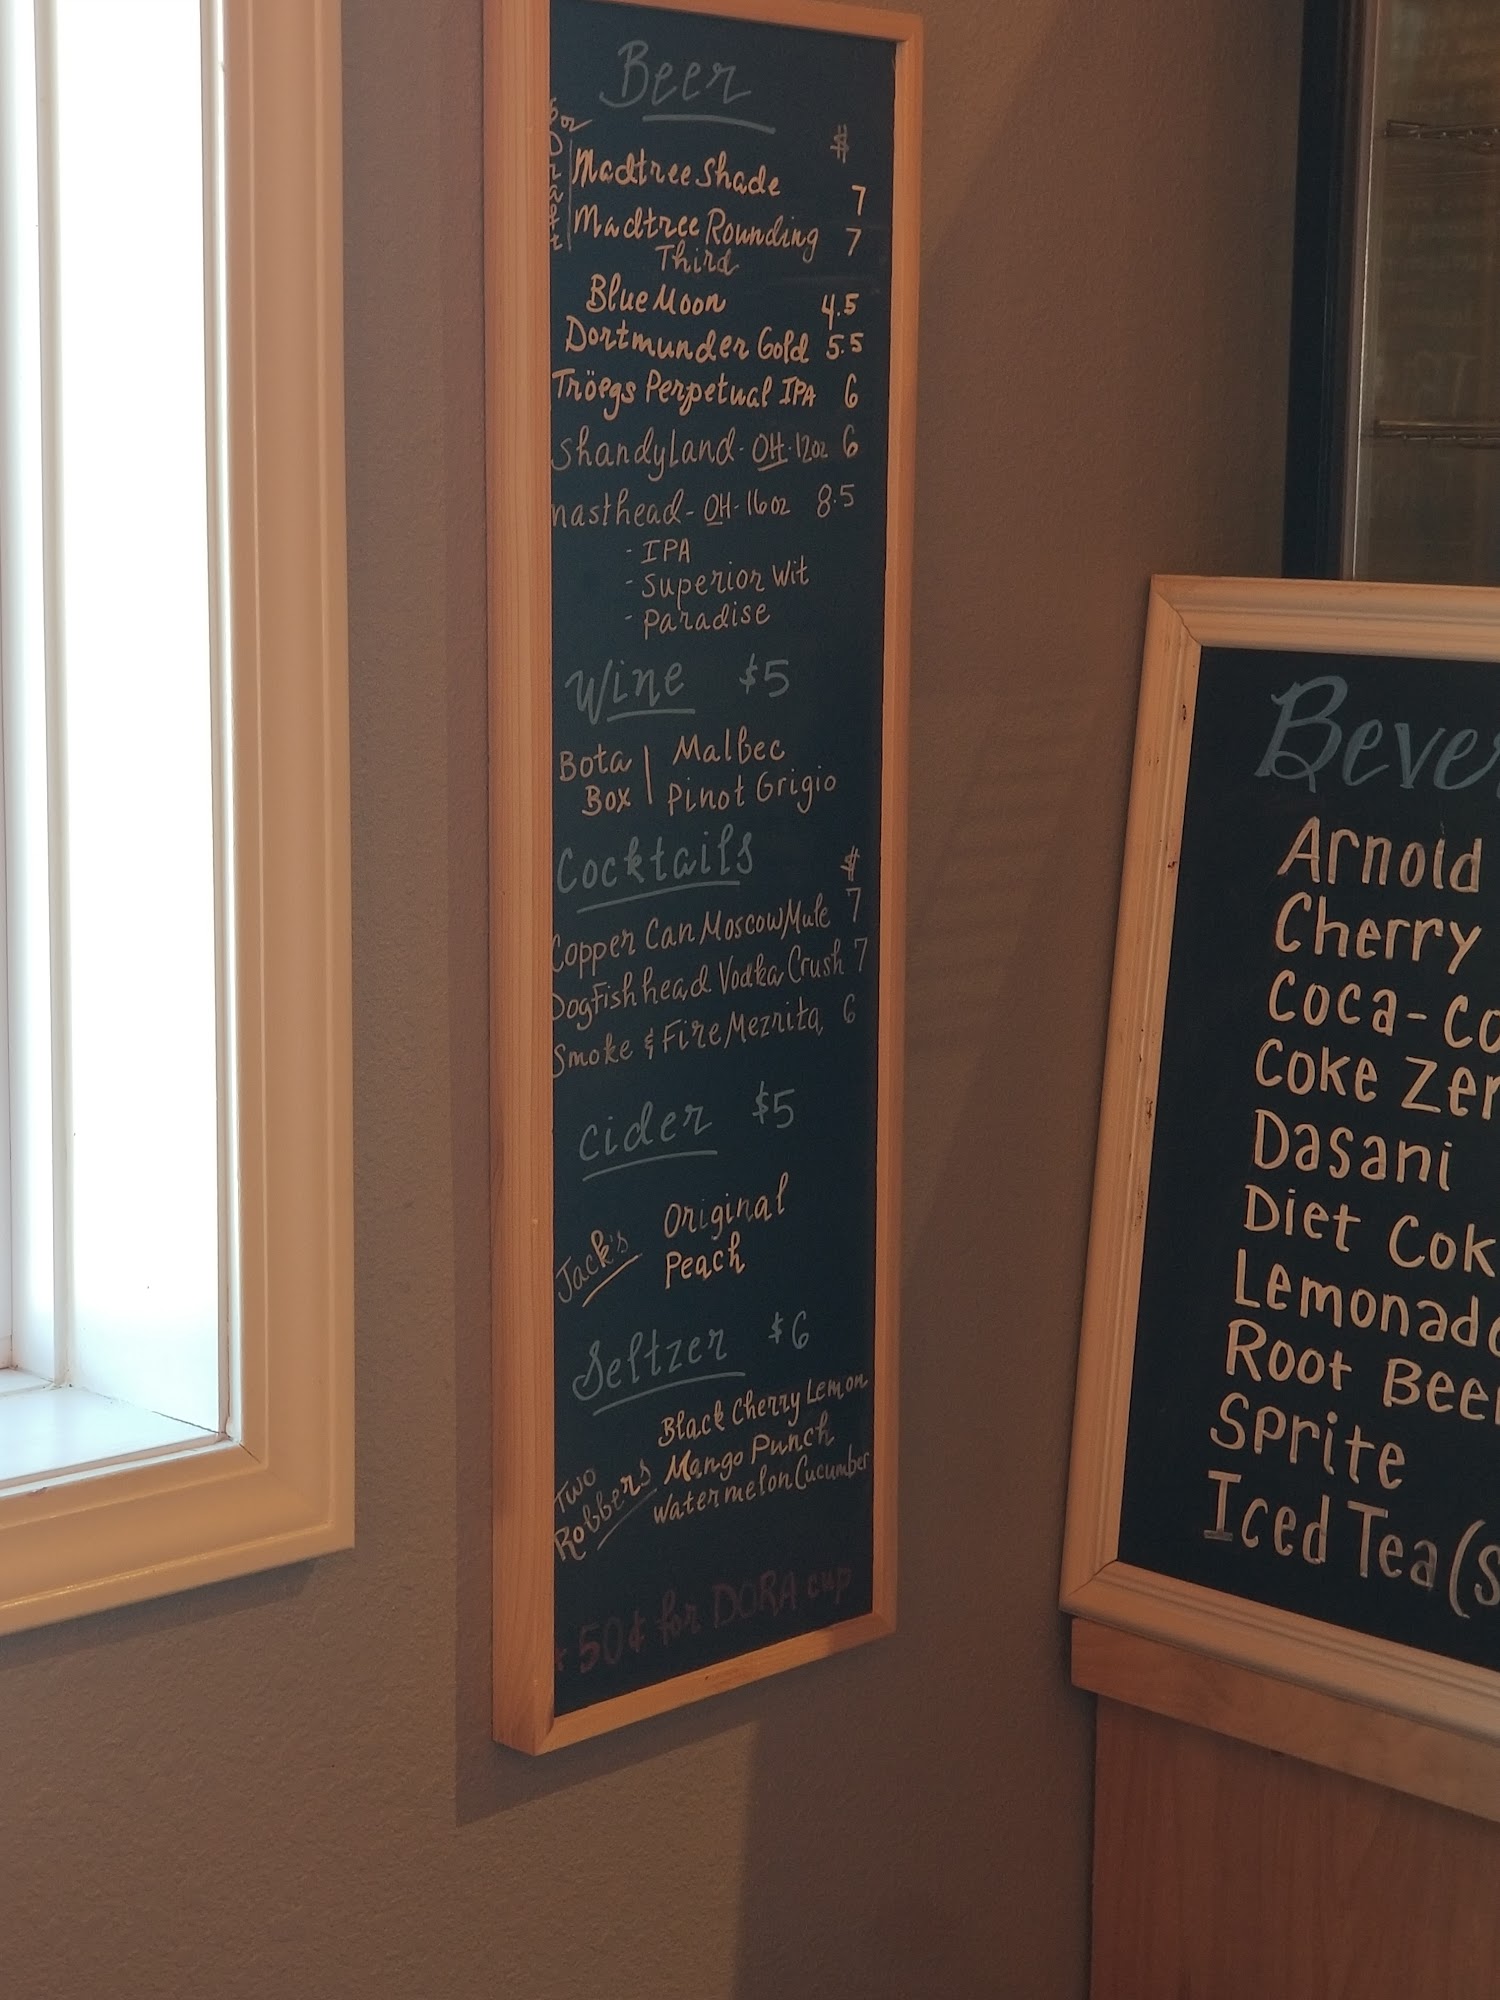 Beer
$
Draft
Madtree Shade 7
Madtree Rounding 7
Third
Blue Moon 4.5
Dortmunder Gold 5.5
Tröegs Perpetual IPA 6
Shandyland - OH - 12oz 6
masthead - OH - 16oz 8.5
- IPA
- Superior Wit
- Paradise
Wine $5
Bota Box
Malbec
Pinot Grigio
Cocktails $
Copper Can Moscow Mule 7
Dogfishhead Vodka Crush 7
Smoke & Fire Mezrita 6
cider $5
Jack's
Original
Peach
Seltzer $6
Two
Robbers
Black Cherry Lemon
Mango Punch
Watermelon Cucumber
* 50¢ for DORA cup
Beve
Arnold
Cherry
Coca-Co
Coke Zer
Dasani
Diet Cok
Lemonade
Root Beer
Sprite
Iced Tea (S